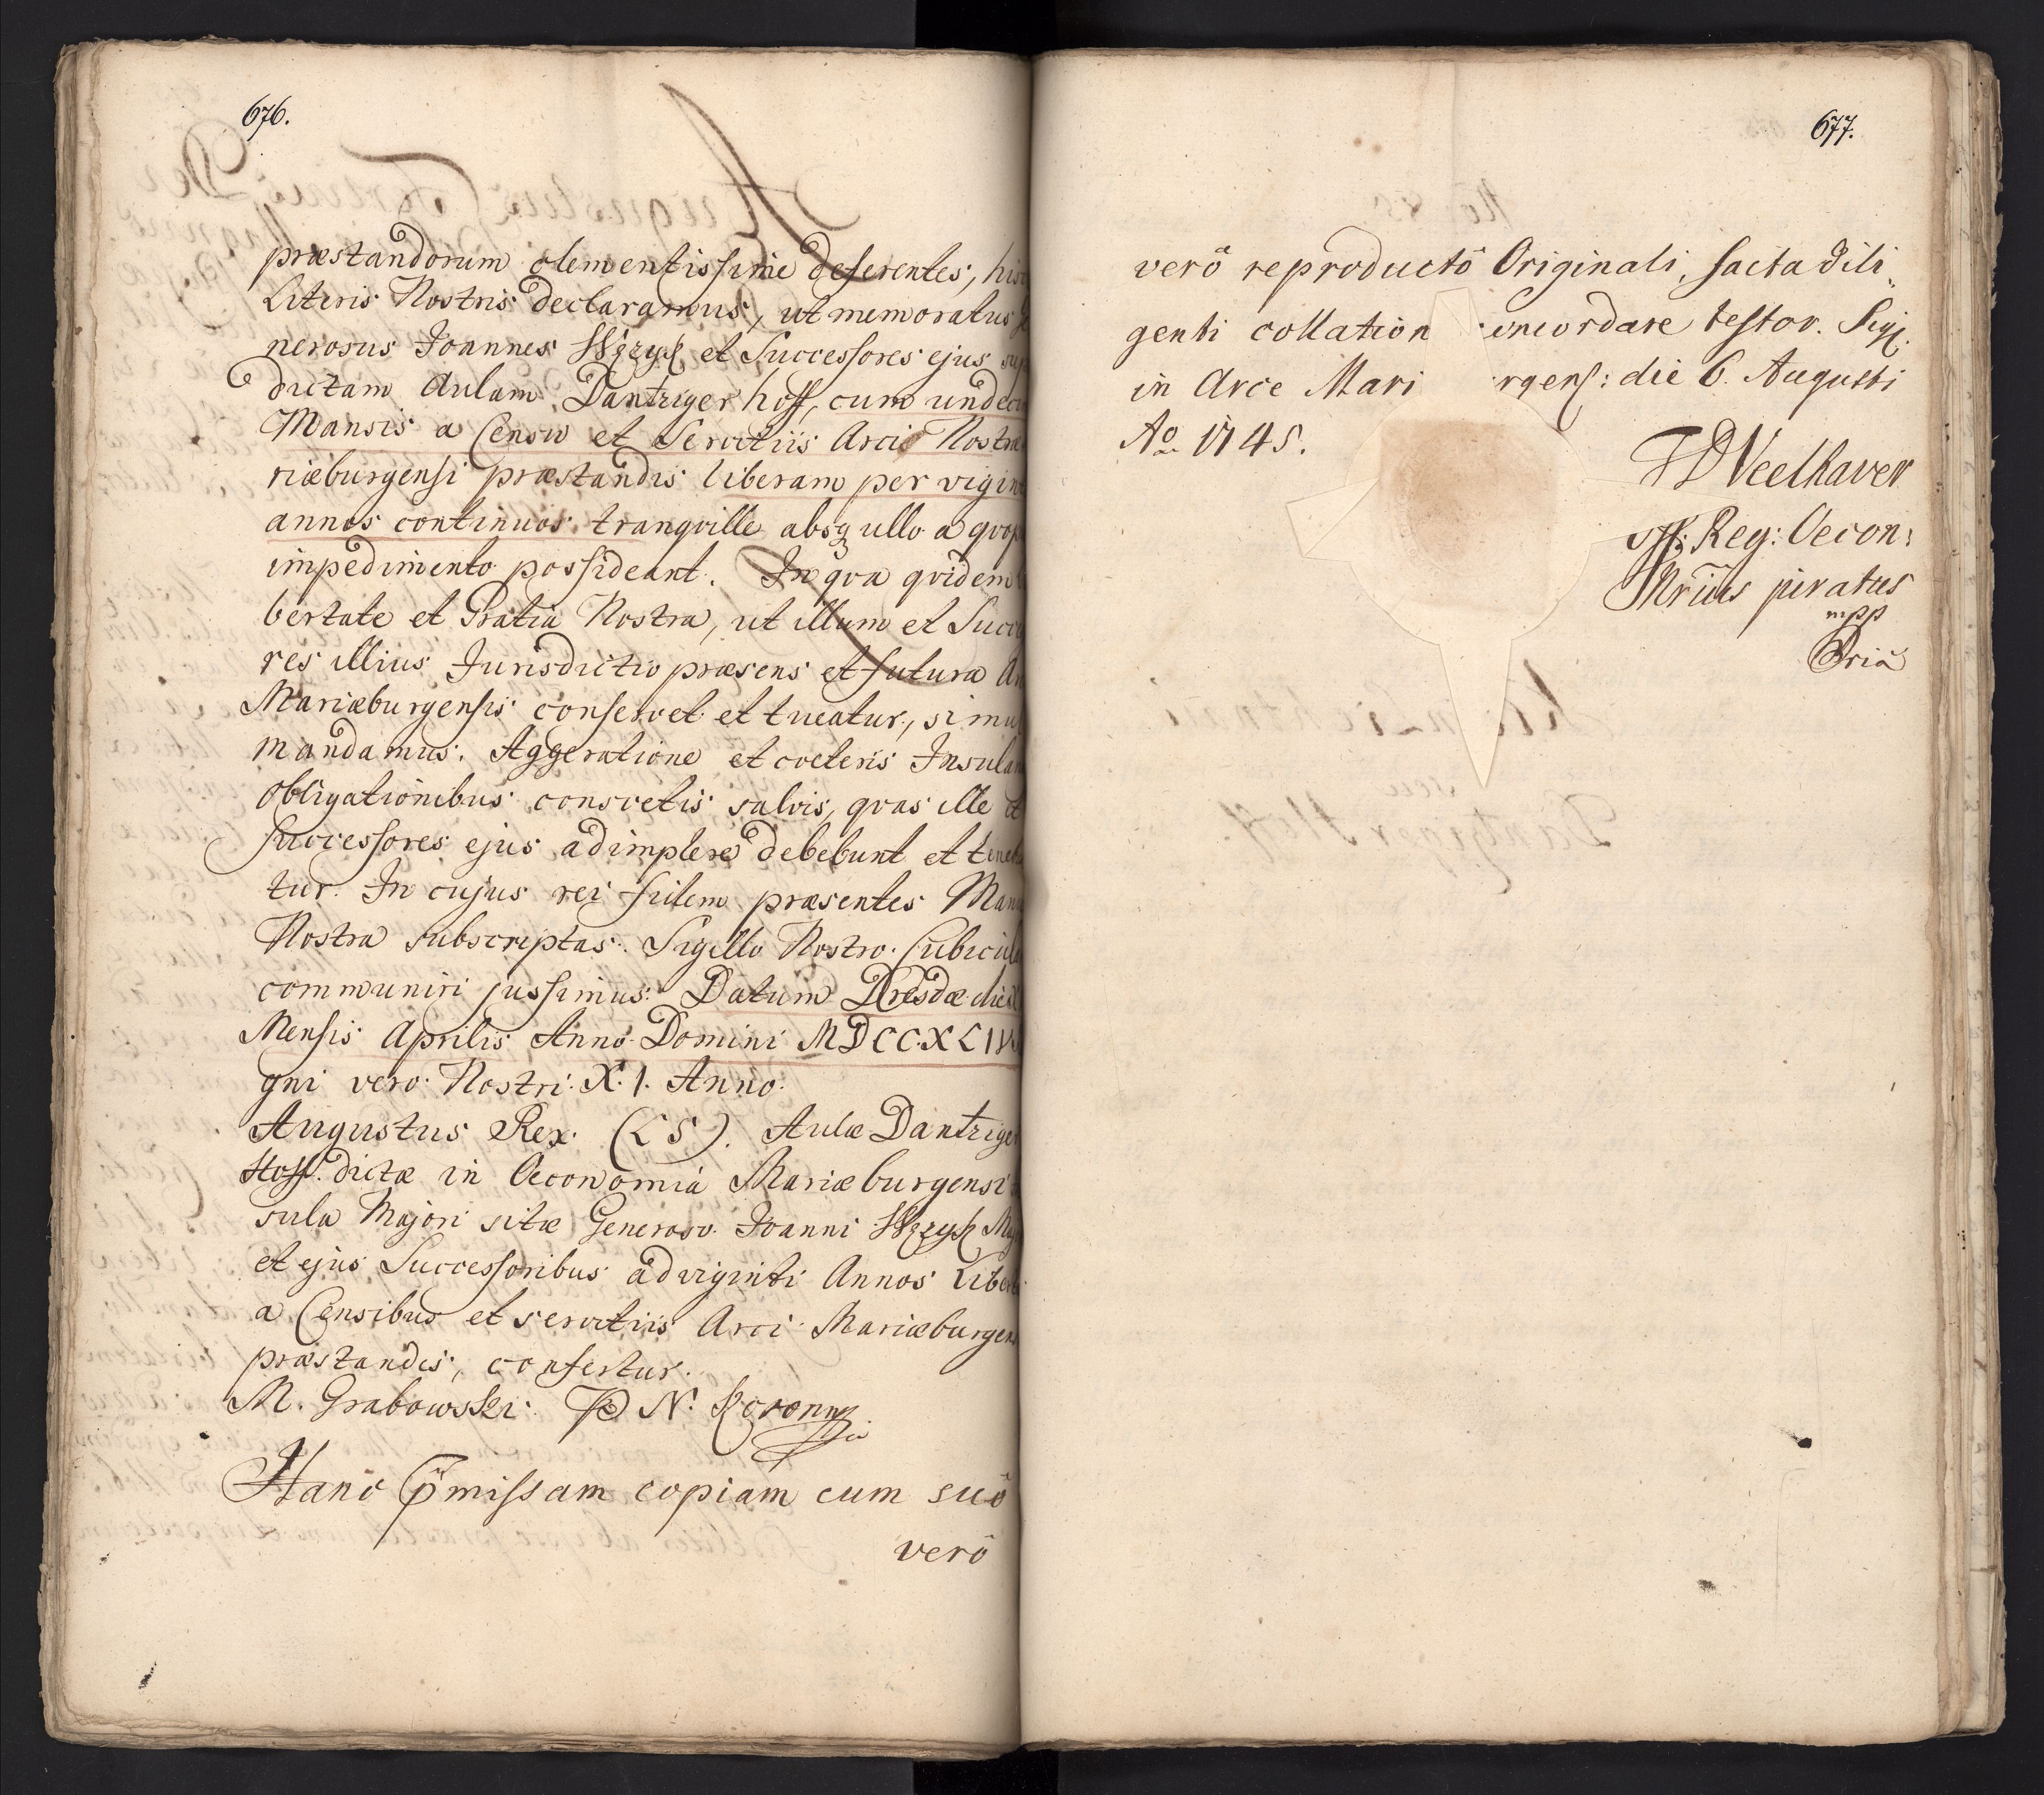 676.
præstandorum clementissime deferentes, hisce
Literis Nostris declaramus, ut memoratus Ge
nerosus Joannes Wężyk et Successores ejus sup
dictam Aulam Dantziger hoff, cum undecim
Mansis a Censu et Servitiis Arci Nostræ
riæburgensi præstandis liberam per viginti
annos continuos tranqville absq ullo a qvop
impedimento possideant. In qva qvidem Li
bertate et Gratia Nostra, ut illum et Succe
res illius Jurisdictio præsens et futura Ar
Mariæburgensis conservet et tueatur, simul
mandamus. Aggeratione et cæteris Insulan
obligationibus consvetis salvis, qvas ille et
Successores ejus adimplere debebunt et tenebun
tur. In cujus rei fidem præsentes Manu
Nostra subscriptas Sigillo Nostro Cubicula
communiri jussimus. Datum Dresdæ die
Mensis Aprilis Anno Domini MDCCXLIV
gni vero Nostri X.I. Anno.
Augustus Rex. (LS). Aulæ Dantziger
Hoff. dictæ in Oeconomia Mariæburgensi
sula Majori sitæ Generoso Joanni Wężyk
et ejus Successoribus ad viginti Annos Liber
a Censibus et servitiis Arci Mariæburgens
præstandis, confertur.
M. Grabowski. P N. Koronny
Hanc p̃missam copiam cum suô
verô
677.
verô reproductô Originali, facta dili„
genti collation oncordare testor. Sig.
in Arce Mari rgens: die 6. Augusti
Ao 1745.
Veelhaver
Reg: Oecon:
Nrius juratus
mpp
pria